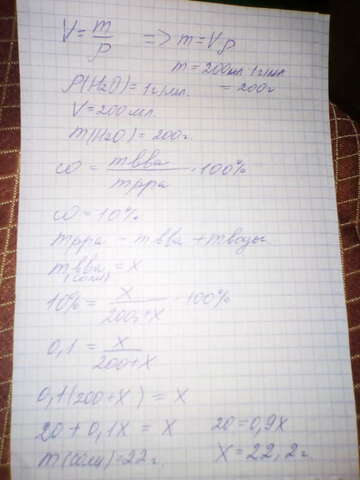 V = m/ρ => m = Vρ
m = 200мл·1г/мл
ρ(H₂O) = 1г/мл. = 200г
V = 200мл.
m(H₂O) = 200г.
ω = mвва/mрра · 100%
ω = 10%
mрра = mвва + mводы
mвва = x
(соли)
10% = x/200+x · 100%
0,1 = x/200+x
0,1(200+x) = x
20 + 0,1x = x 20 = 0,9x
m(соли) = 22г. x = 22,2г.